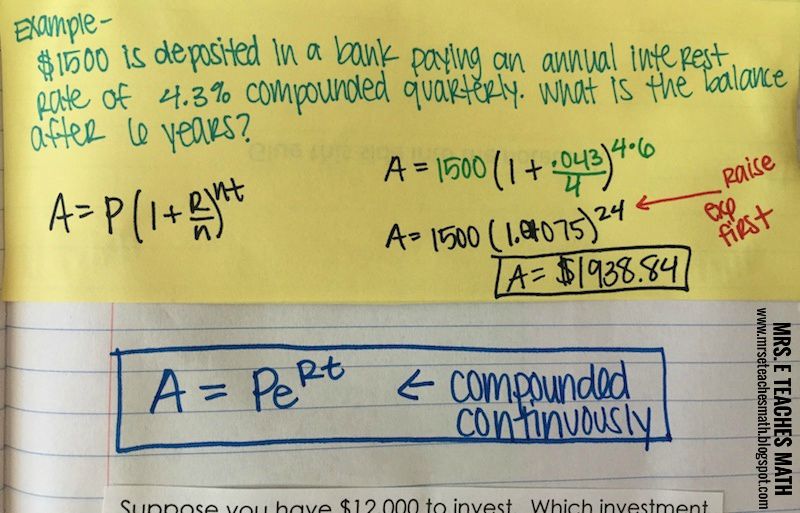 Example-
$1500 is deposited in a bank paying an annual interest
rate of 4.3% compounded quarterly. What is the balance
after 6 years?
A = P(1 + R/n)^nt
A = 1500(1 + .043/4)^4·6
A = 1500(1.01075)^24
raise
exp
first
A = $1938.84
A = Pe^Rt ← compounded
continuously
Suppose you have $12,000 to invest. Which investment
MRS. E TEACHES MATH
www.mrseteachesmath.blogspot.com